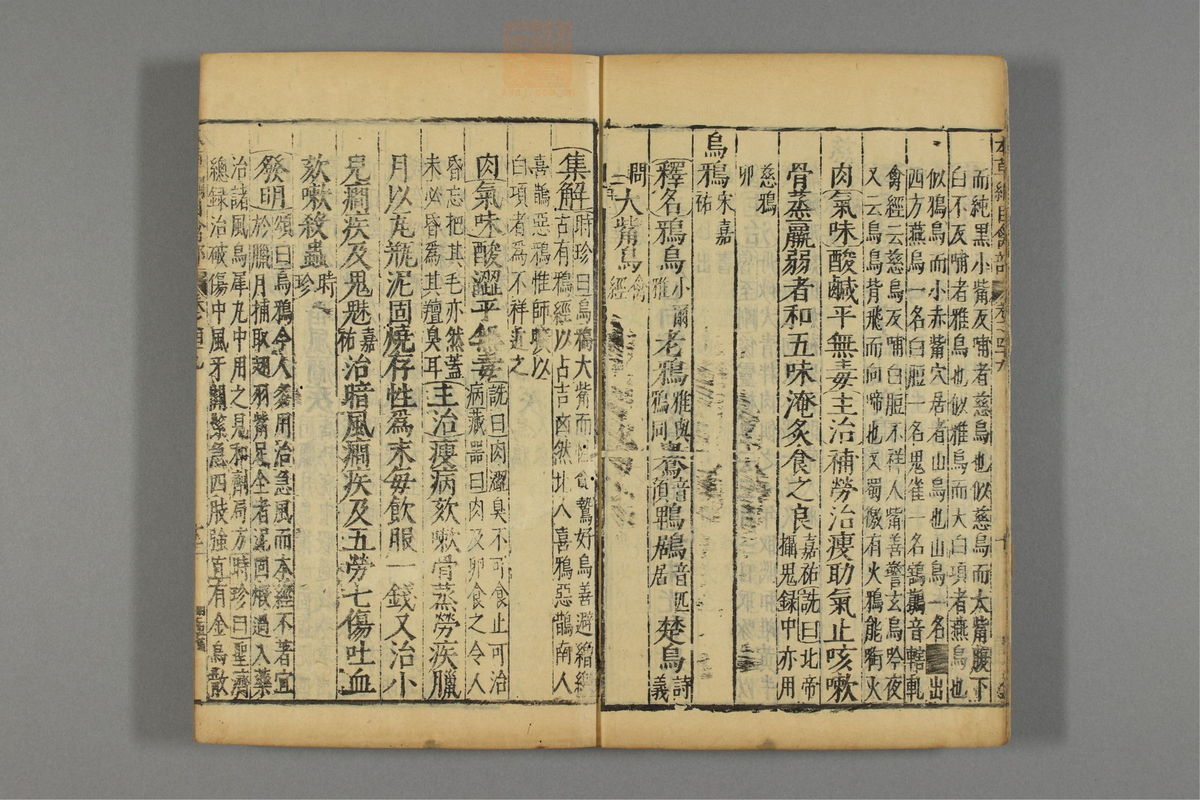 而純黒小觜反哺者慈烏也似慈烏而大觜腹下
白不反哺者雅烏也似雅烏而大白項者燕烏也
似鴉烏而小赤觜穴居者山烏也山烏一名出
西方燕烏一名白脰一名鬼雀一名鶷鶡音轄軋
禽經云慈烏反哺白脰不祥人觜善警玄烏吟夜
又云烏鳥背飛而向啼也又蜀徼有火鴉能銜火
肉氣味酸鹹平無毒主治補勞治瘦助氣止咳嗽
骨蒸羸弱者和五味淹炙食之良嘉祐詵曰北帝
攝鬼録中亦用
慈鴉
卵
烏鴉宋嘉
祐
釋名鴉烏小爾
雅老鴉雅與
鴉同鸒音
預鵯鶋音匹
居楚烏詩
義
問大觜烏禽
經
集解時珍曰烏鴉大觜而性貪鷙好鳥善避繒繳
古有鴉經以占吉凶然北人喜鴉惡鵲南人
喜鵲惡鴉惟師曠以
白項者為不祥近之
肉氣味酸澀平無毒詵曰肉澀臭不可食止可治
病藏器曰肉及卵食之令人
昏忘把其毛亦然蓋
未必昏為其羶臭耳主治瘦病欬嗽骨蒸勞疾臘
月以瓦瓶泥固燒存性爲末每飲服一錢又治小
兒癇疾及鬼魅嘉
祐治暗風癇疾及五勞七傷吐血
欬嗽殺蟲時
珍
發明頌曰烏鴉今人多用治急風而本經不著宜
於臘月捕取翅羽觜足全者泥固煅過入藥
治諸風烏犀丸中用之見和劑局方時珍曰聖濟
總録治破傷中風牙關緊急四肢強直有金烏散